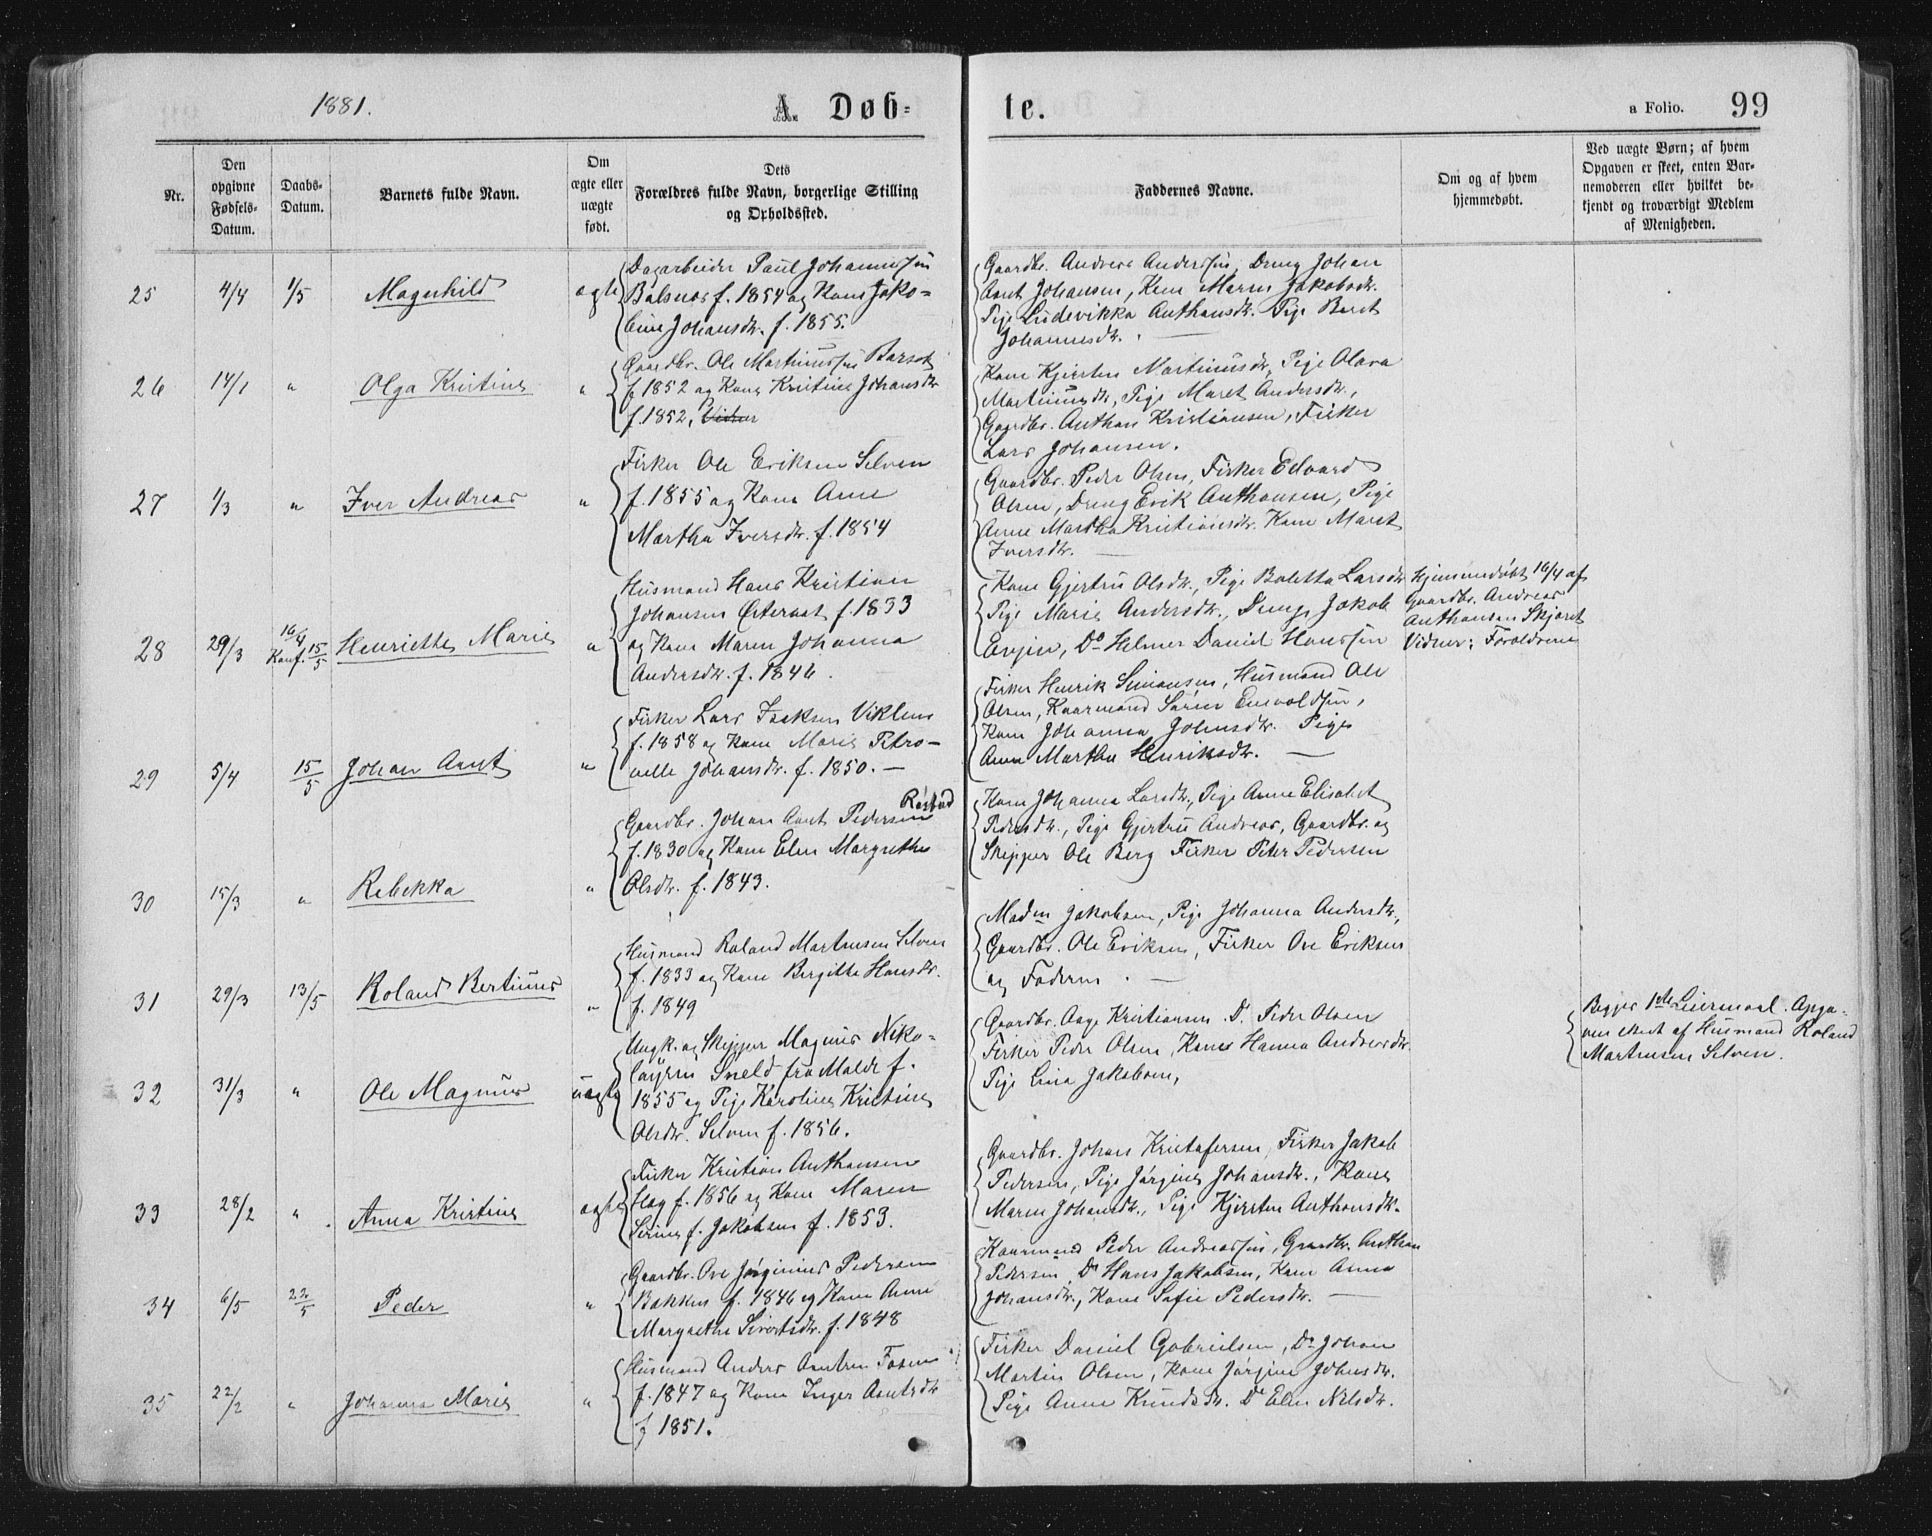 1881.
A. Døb-
te.
a Folio. 99
Nr.
Den opgivne Fødsels-Datum.
Daabs-Datum.
Barnets fulde Navn.
Om ægte eller uægte født.
Dets Forældres fulde Navn, borgerlige Stilling og Opholdssted.
Faddernes Navne.
Om og af hvem hjemmedøbt.
Ved uægte Børn; af hvem Opgaven er skeet, enten Barnemoderen eller hvilket bekjendt og troværdigt Medlem af Menigheden.
25 4/4 1/5 Magnhild ægte
Dagarbeider Paul Johannessen
Balsnes f. 1854 og Kone Jako-
bine Johansdr. f. 1855.
Gaardbr. Andreas Anderssen, Dreng Johan
Arnt Johansen, Kone Maren Jakobsdr.
Pige Ludevikka Anthonsdr. Pige Beret
Johannesdr.
26 14/1 " Olga Kristine "
Gaardbr. Ole Martinussen Barset
f. 1852 og Kone Kristine Johansdr
f. 1852,
Kone Kjersten Martinusdr, Pige Olava
Martinusdr, Pige Maret Andersdr.,
Gaardbr. Anthon Kristiansen, Fisker
Lars Johansen.
27 1/3 " Iver Andreas "
Fisker Ole Eriksen Selven
f. 1855 og Kone Anne
Martha Iversdr. f. 1854
Gaardbr. Peder Olsen, Fisker Edvard
Olsen, Dreng Erik Anthonsen, Pige
Anne Martha Kristiansdr. Kone Maret
Iversdr.
28 29/3 16/4 Konf. 15/5 Henriette Marie "
Husmand Hans Kristian
Johansen Østeraat f. 1833
og Kone Maren Johanna
Andersdr. f. 1846.
Kone Gjertru Olsdr., Pige Boletta Larsdr
Pige Marie Andersdr., Dreng Jakob
Evjen, Do Helmer Daniel Hanssen
Hjemmedøbt 16/4 af
Gaardbr. Andreas
Anthonsen Skjøret
Vidner: Forældrene
29 5/4 15/5 Johan Arnt "
Fisker Lars Isaksen Viklem
f. 1858 og Kone Marie Petro-
nelle Johansdr. f. 1850. —
Fisker Henrik Simonsen, Husmand Ole
Olsen, Kaarmand Søren Enevoldsen,
Kone Johanna Johnsdr. Pige
Anne Martha Henriksdr. —
30 15/3 " Rebekka "
Gaardbr. Johan Arnt Pedersen Røstad
f. 1830 og Kone Elen Margrethe
Olsdr. f. 1843.
Kone Johanna Larsdr., Pige Anne Elisabet
Pedersdr., Pige Gjertru Andreas, Gaardbr. og
Skipper Ole Berg Fisker Peter Pedersen
31 29/3 13/5 Roland Bertinus "
Husmand Roland Martensen Selven
f. 1833 og Kone Bergitte Hansdr.
f. 1849
Madm Jakobsen, Pige Johanna Andersdr,
Gaardbr. Ole Eriksen, Fisker Ove Eriksen
og Faderen. —
32 31/3 " Ole Magnus uægte
Ungk. og Skipper Magnus Niko-
laysen Sneld fra Molde f.
1855 og Pige Karoline Kristine
Olsdr. Selven f. 1856.
Gaardbr. Aage Kristiansen. Do Peder Olsen
Fisker Peder Olsen, Kone Hanna Andreasdr.
Pige Lina Jakobsen,
Begges 1ste Leiermaal. Opga-
ven skeet af Husmand Roland
Martensen Selven.
33 28/2 " Anna Kristine ægte
Fisker Kristian Anthonsen
Hog f. 1856 og Kone Maren
Serine f. Jakobsen f. 1853.
Gaardbr. Johan Kristofersen, Fisker Jakob
Pedersen, Pige Jørgine Johansdr., Kone
Maren Johansdr., Pige Kjersten Anthonsdr.
34 6/5 22/5 Peder "
Gaardbr. Ove Jørginius Pedersen
Bakken f. 1846 og Kone Anne
Margrethe Sivertsdr. f. 1848
Kaarmand Peder Andreassen, Gaardbr. Anthon
Pedersen, Do Hans Jakobsen, Kone Anna
Johansdr., Kone Sofie Pedersdr. —
35 22/2 " Johanna Marie "
Husmand Anders Arntsen Fosen
f. 1847 og Kone Inger Arntsdr
f 1851.
Fisker Daniel Gabrielsen, Do Johan
Martin Olsen, Kone Jørgine Johnsdr.
Pige Anne Knudsdr. Do Elen Nilsdr.